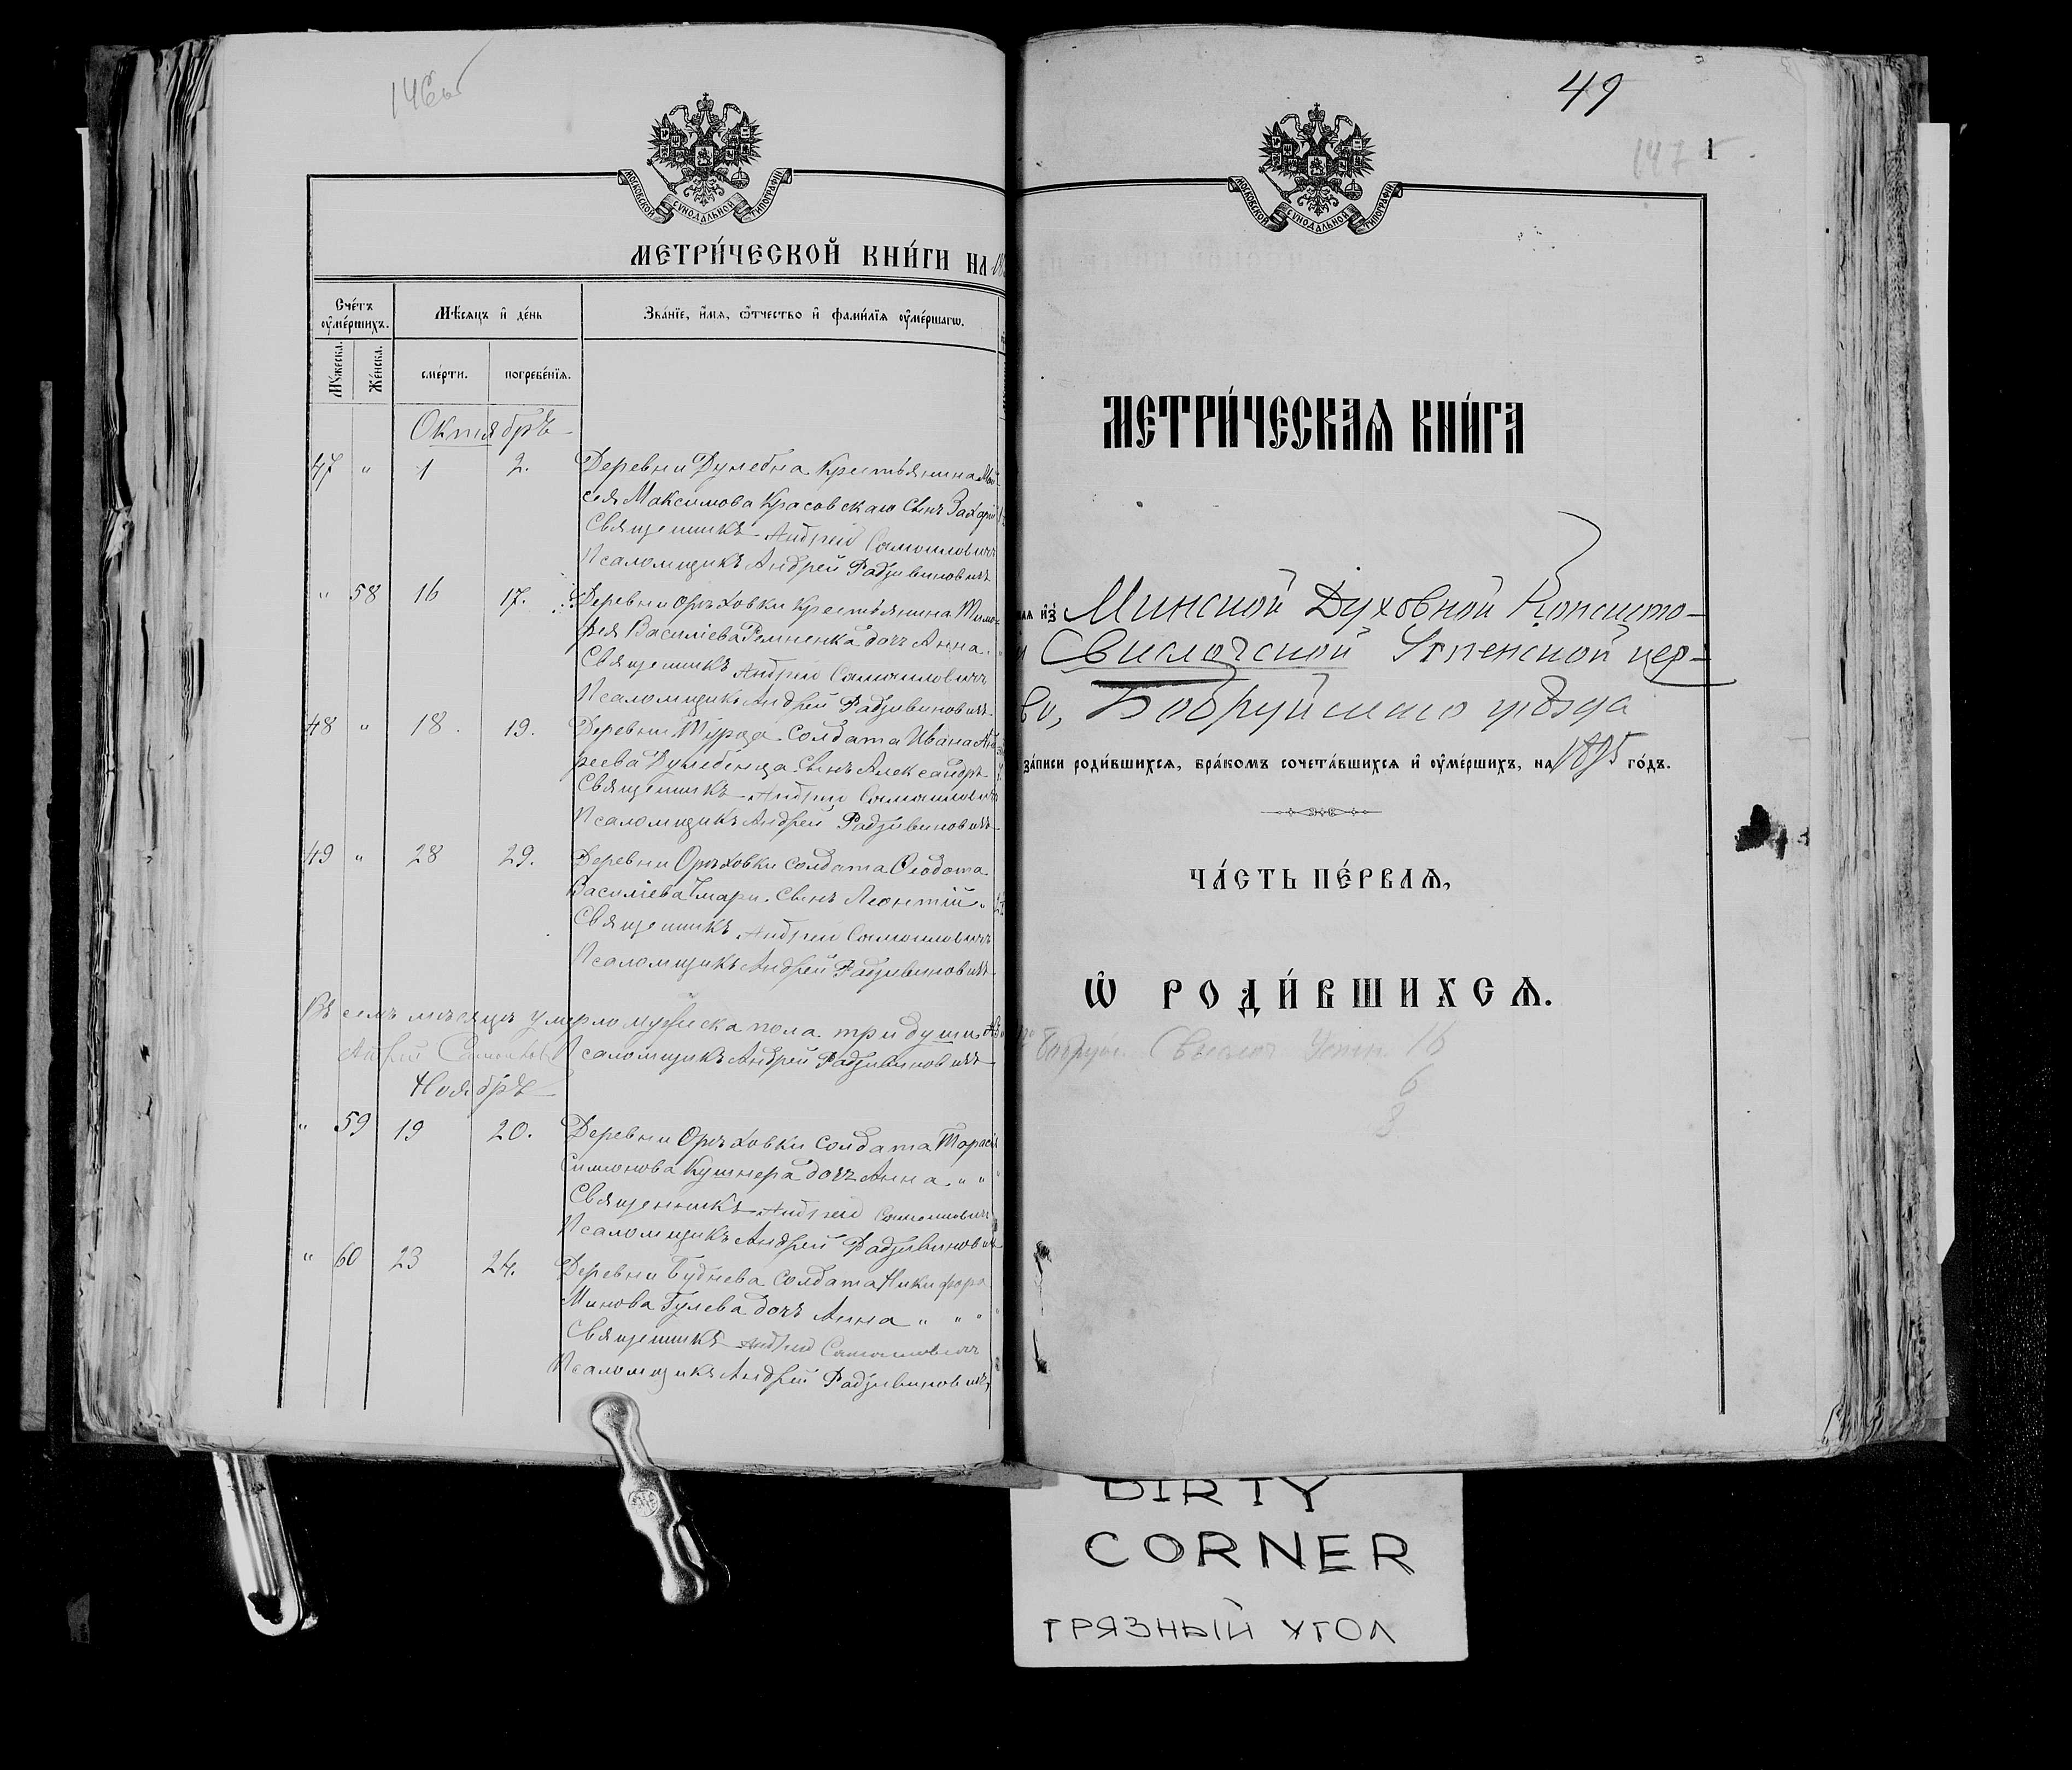 146об
МОСКОВСКОЙ СѴНОДАЛЬНОЙ ТИПОГРАФІИ
МЕТРИ́ЧЕСКОЙ КНИ́ГИ НА
Сче́тъ ᲂу҆ме́ршихъ.
Мѣ́сяцъ и҆ де́нь
Зва́нїе, и҆́мя, ѻ҆́тчество и҆ фами́лїя ᲂу҆ме́ршагѡ.
Мꙋ́жеска.
Же́нска.
сме́рти.
погребе́нїя.
Октябрь
47 " 1 2. Деревни Дулебна Крестьянина Мои-
сея Максимова Красовскаго сынъ Захарій
Священникъ Андрей Самойловичъ
Псаломщикъ Андрей Радзивиновичъ
" 58 16 17. Деревни Орѣховки Крестьянина Тимо-
фея Василіева дочь Анна.
Священникъ Андрей Самойловичъ
Псаломщикъ Андрей Радзивиновичъ
48 " 18. 19. Деревни солдата Ивана Анд-
реева сынъ Александръ
Священникъ Андрей Самойловичъ
Псаломщикъ Андрей Радзивиновичъ
49 " 28 29. Деревни Орѣховки солдата Ѳеодота
Василіева сынъ Леонтій.
Священникъ Андрей Самойловичъ
Псаломщикъ Андрей Радзивиновичъ
Въ семъ мѣсяцѣ умерло мужеска пола три души,
Псаломщикъ Андрей Радзивиновичъ
Ноябрь
" 59 19 20. Деревни Орѣховки солдата Тарасія
Симонова Кушнера дочь Анна. " "
Священникъ Андрей Самойловичъ
Псаломщикъ Андрей Радзивиновичъ
" 60 23 24. Деревни Буднева солдата Никифора
Минова Гулева дочь Анна " " "
Священникъ Андрей Самойловичъ
Псаломщикъ Андрей Радзивиновичъ
49
147
1
МОСКОВСКОЙ СѴНОДАЛЬНОЙ ТИПОГРАФІИ
МЕТРИ́ЧЕСКАѦ КНИ́ГА
и҆з̾ Минской Духовной Консисто-
Свислочской Успенской цер-
ви, Бобруйскаго уѣзда
за́писи роди́вшихся, бра́комъ сочета́вшихся и҆ ᲂу҆ме́ршихъ, на 1895 го́дъ.
ЧА́СТЬ ПЕ́РВАѦ,
Ѡ҆ РОДИ́ВШИХСѦ.
Бобруй. Свислоч Успен. 16
6
8
DIRTY
CORNER
ГРЯЗНЫЙ УГОЛ